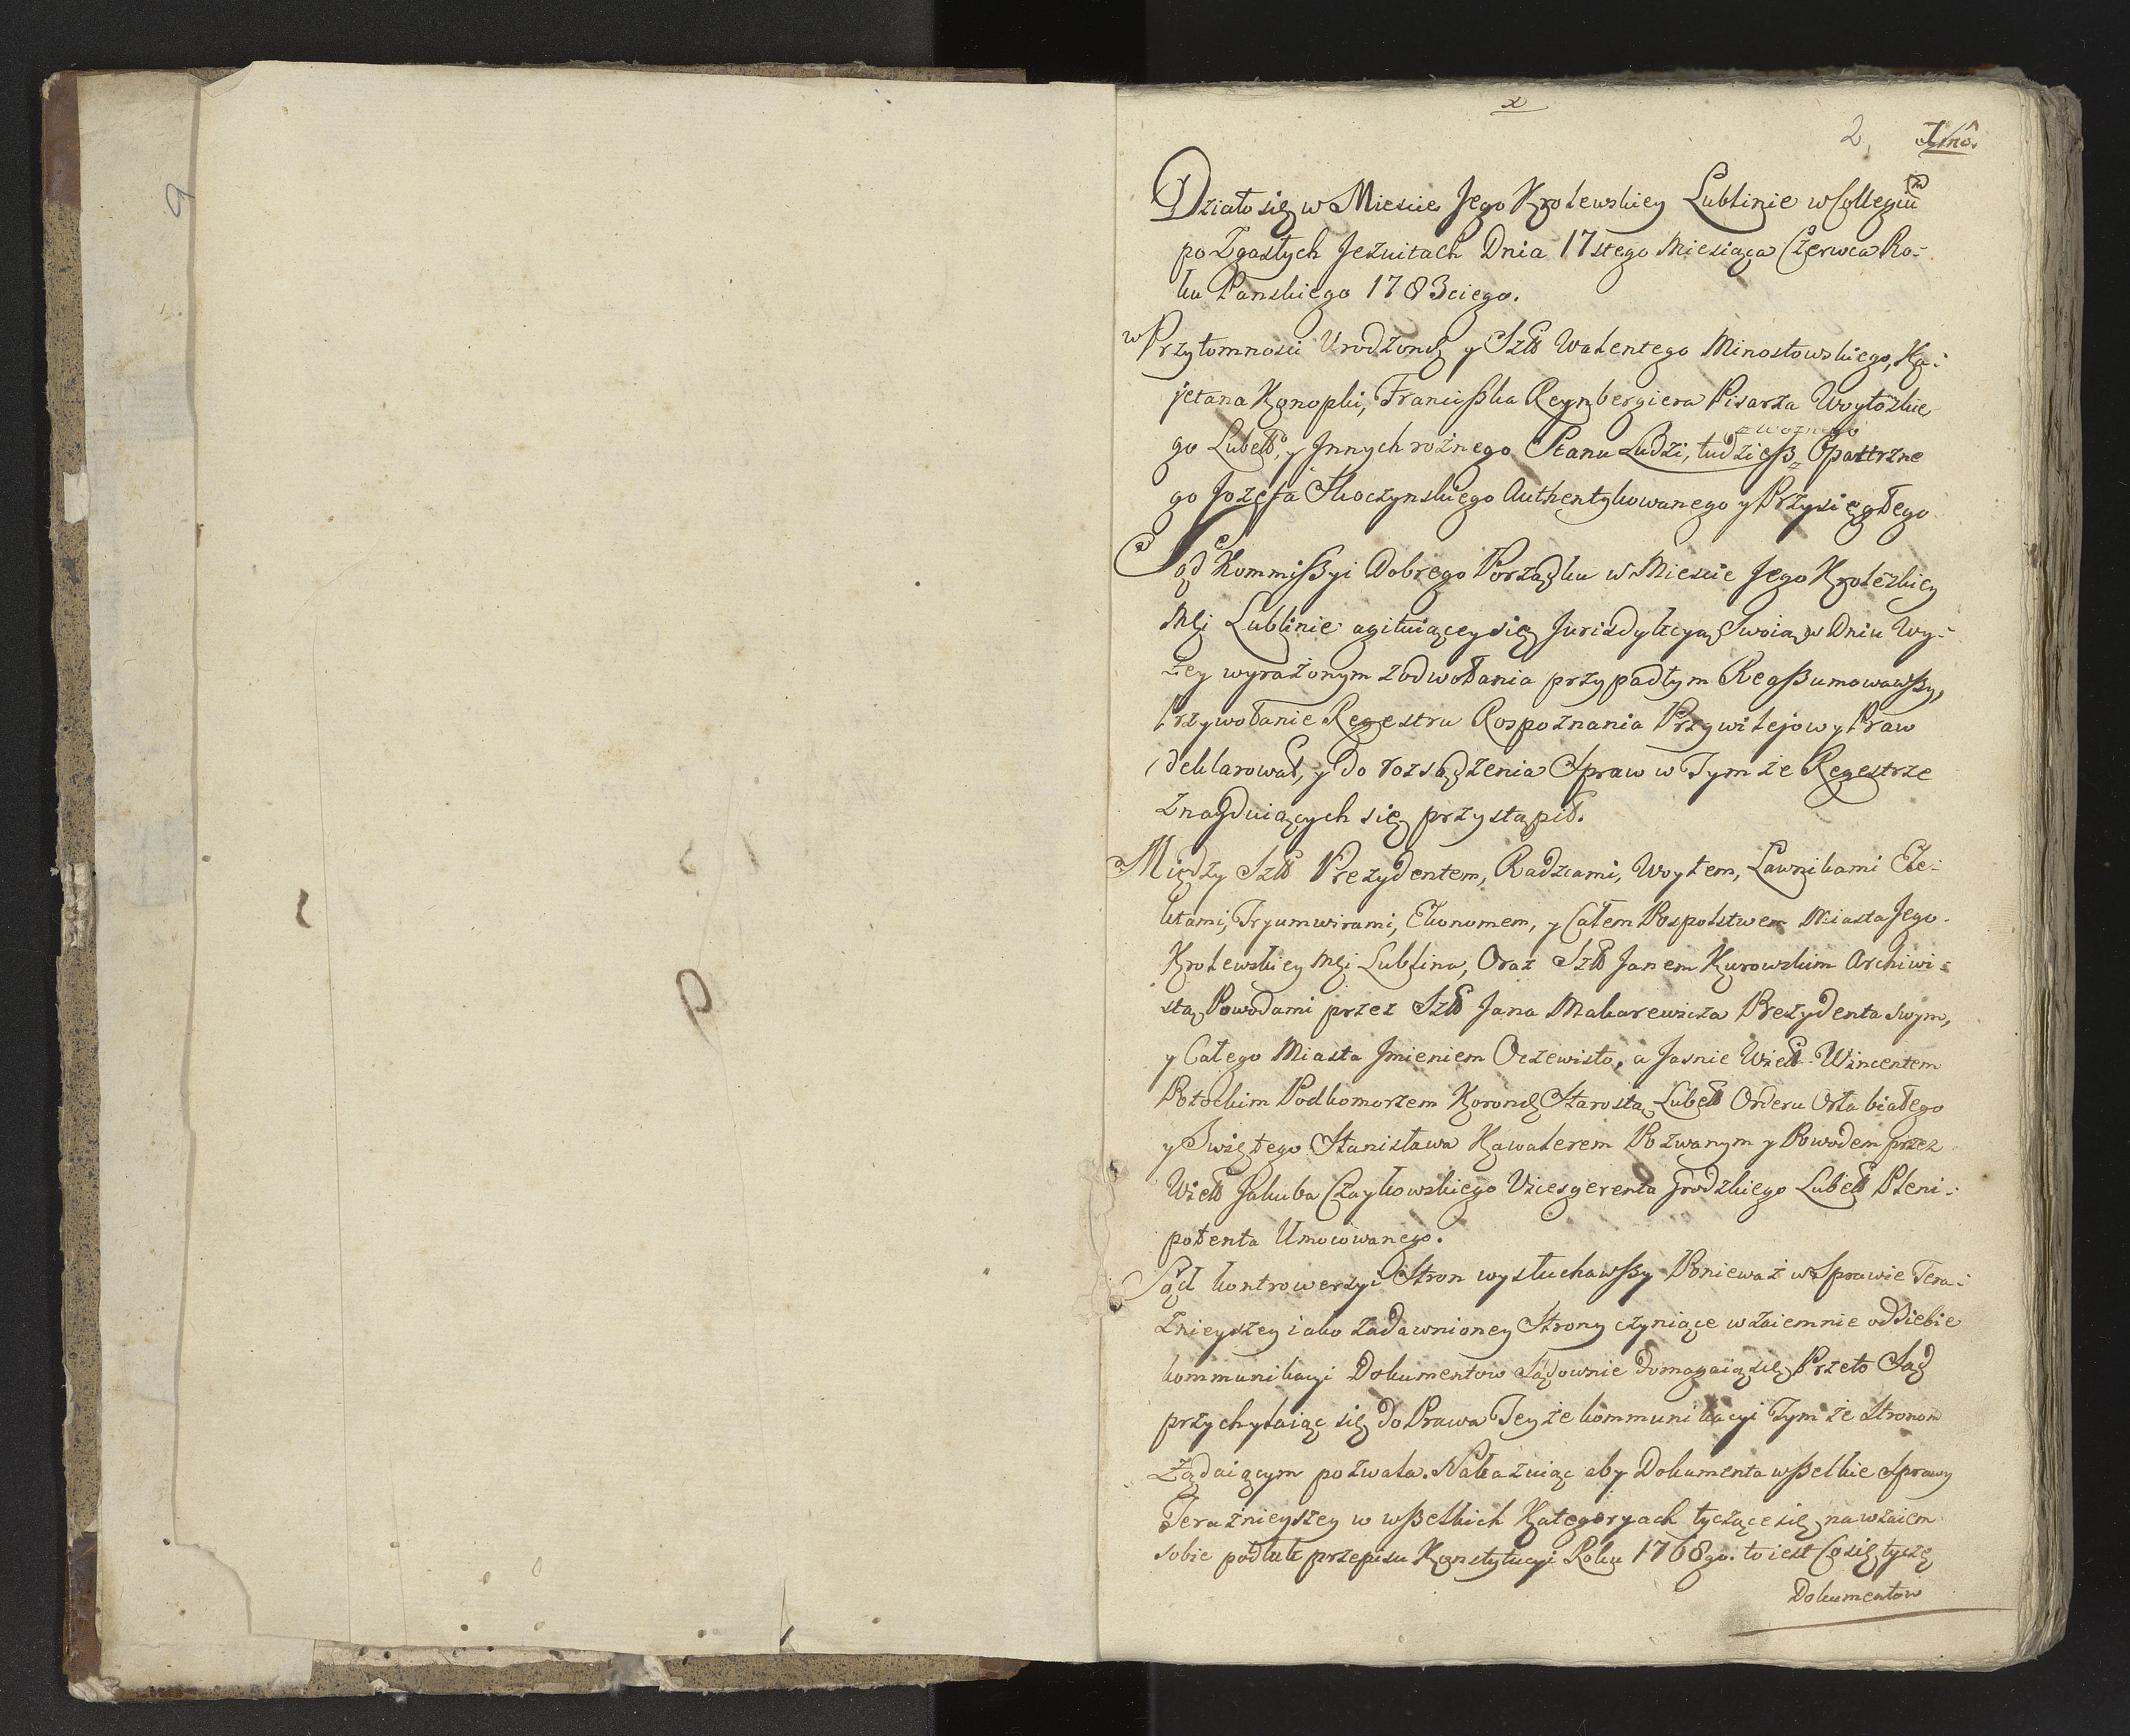 x
2, 1mo.
Działo się w Miescie Jego Krolewskiey Lublinie w Collegiū
po Zgasłych Jezuitach Dnia 17stego Miesiąca Czerwca Ro-
ku Panskiego 1783ciego.
w Przytomnosci Urodzonych y Szll Walentego Minostowskiego, Ka-
jetana Konopki, Franciszka Reynbergiera Pisarza Woytozkie
go Lubell, y Jnnych rożnego Stanu Ludzi, tudziesz Opattrzne
= Woznego
go Jozefa Skoczynskiego Authentykowanego y Przysięgłego
Sąd Kommissyi Dobrego Porządku w Miescie Jego Krolezkiey
Mci Lublinie agituiącey się Jurisdykcyą Swoią w Dniu Wy-
żey wyrażonym z odwołania przypadłym Reassumowawszy,
Przywołanie Regestru Rospoznania Przywilejow y Praw
deklarował, y do rozsądzenia Spraw w Tymże Regestrze
znayduiących się przystąpił.
Między Szll Prezydentem, Radzcami, Woytem, Ławnikami Ele-
ktami, Tryumwirami, Ekonomem, y Całem Pospolstwem Miasta Jego
Krolewskiey Mci Lublina, Oraz Szll Janem Kurowskim Archiwi-
stą Powodami przez Szll Jana Makarewicza Prezydenta swym,
y Całego Miasta Jmieniem Oczewisto, a Jasnie Wiell Wincentem
Potockim Podkomorzem Koronch Starostą Lubell Orderu Orła białego
y Swiętego Stanisława Kawalerem Pozwanym y Powodem przez
Wiell Jakuba Czaykowskiego Vicesgerenta Grodzkiego Lubell Pleni-
potenta Umocowanego.
Sąd kontrowersyi Stron wysłuchawszy Ponieważ w Sprawie Tera-
źnieyszey iako zadawnioney Strony czyniące wzaiemnie od Siebie
kommunikacyi Dokumentow Sądownie domagaią się Przeto Sąd
przychylaiąc się do Prawa Teyże kommunikacyi Tymże Stronom
Żądaiącym pozwala. Nakazuiąc aby Dokumenta wszelkie Sprawy
Teraźnieyszey w wszelkich Kategoryach tyczące się nawzaiem
sobie podług przepisu Konstytucyi Roku 1768go. to iest Co się tyczę
Dokumentow